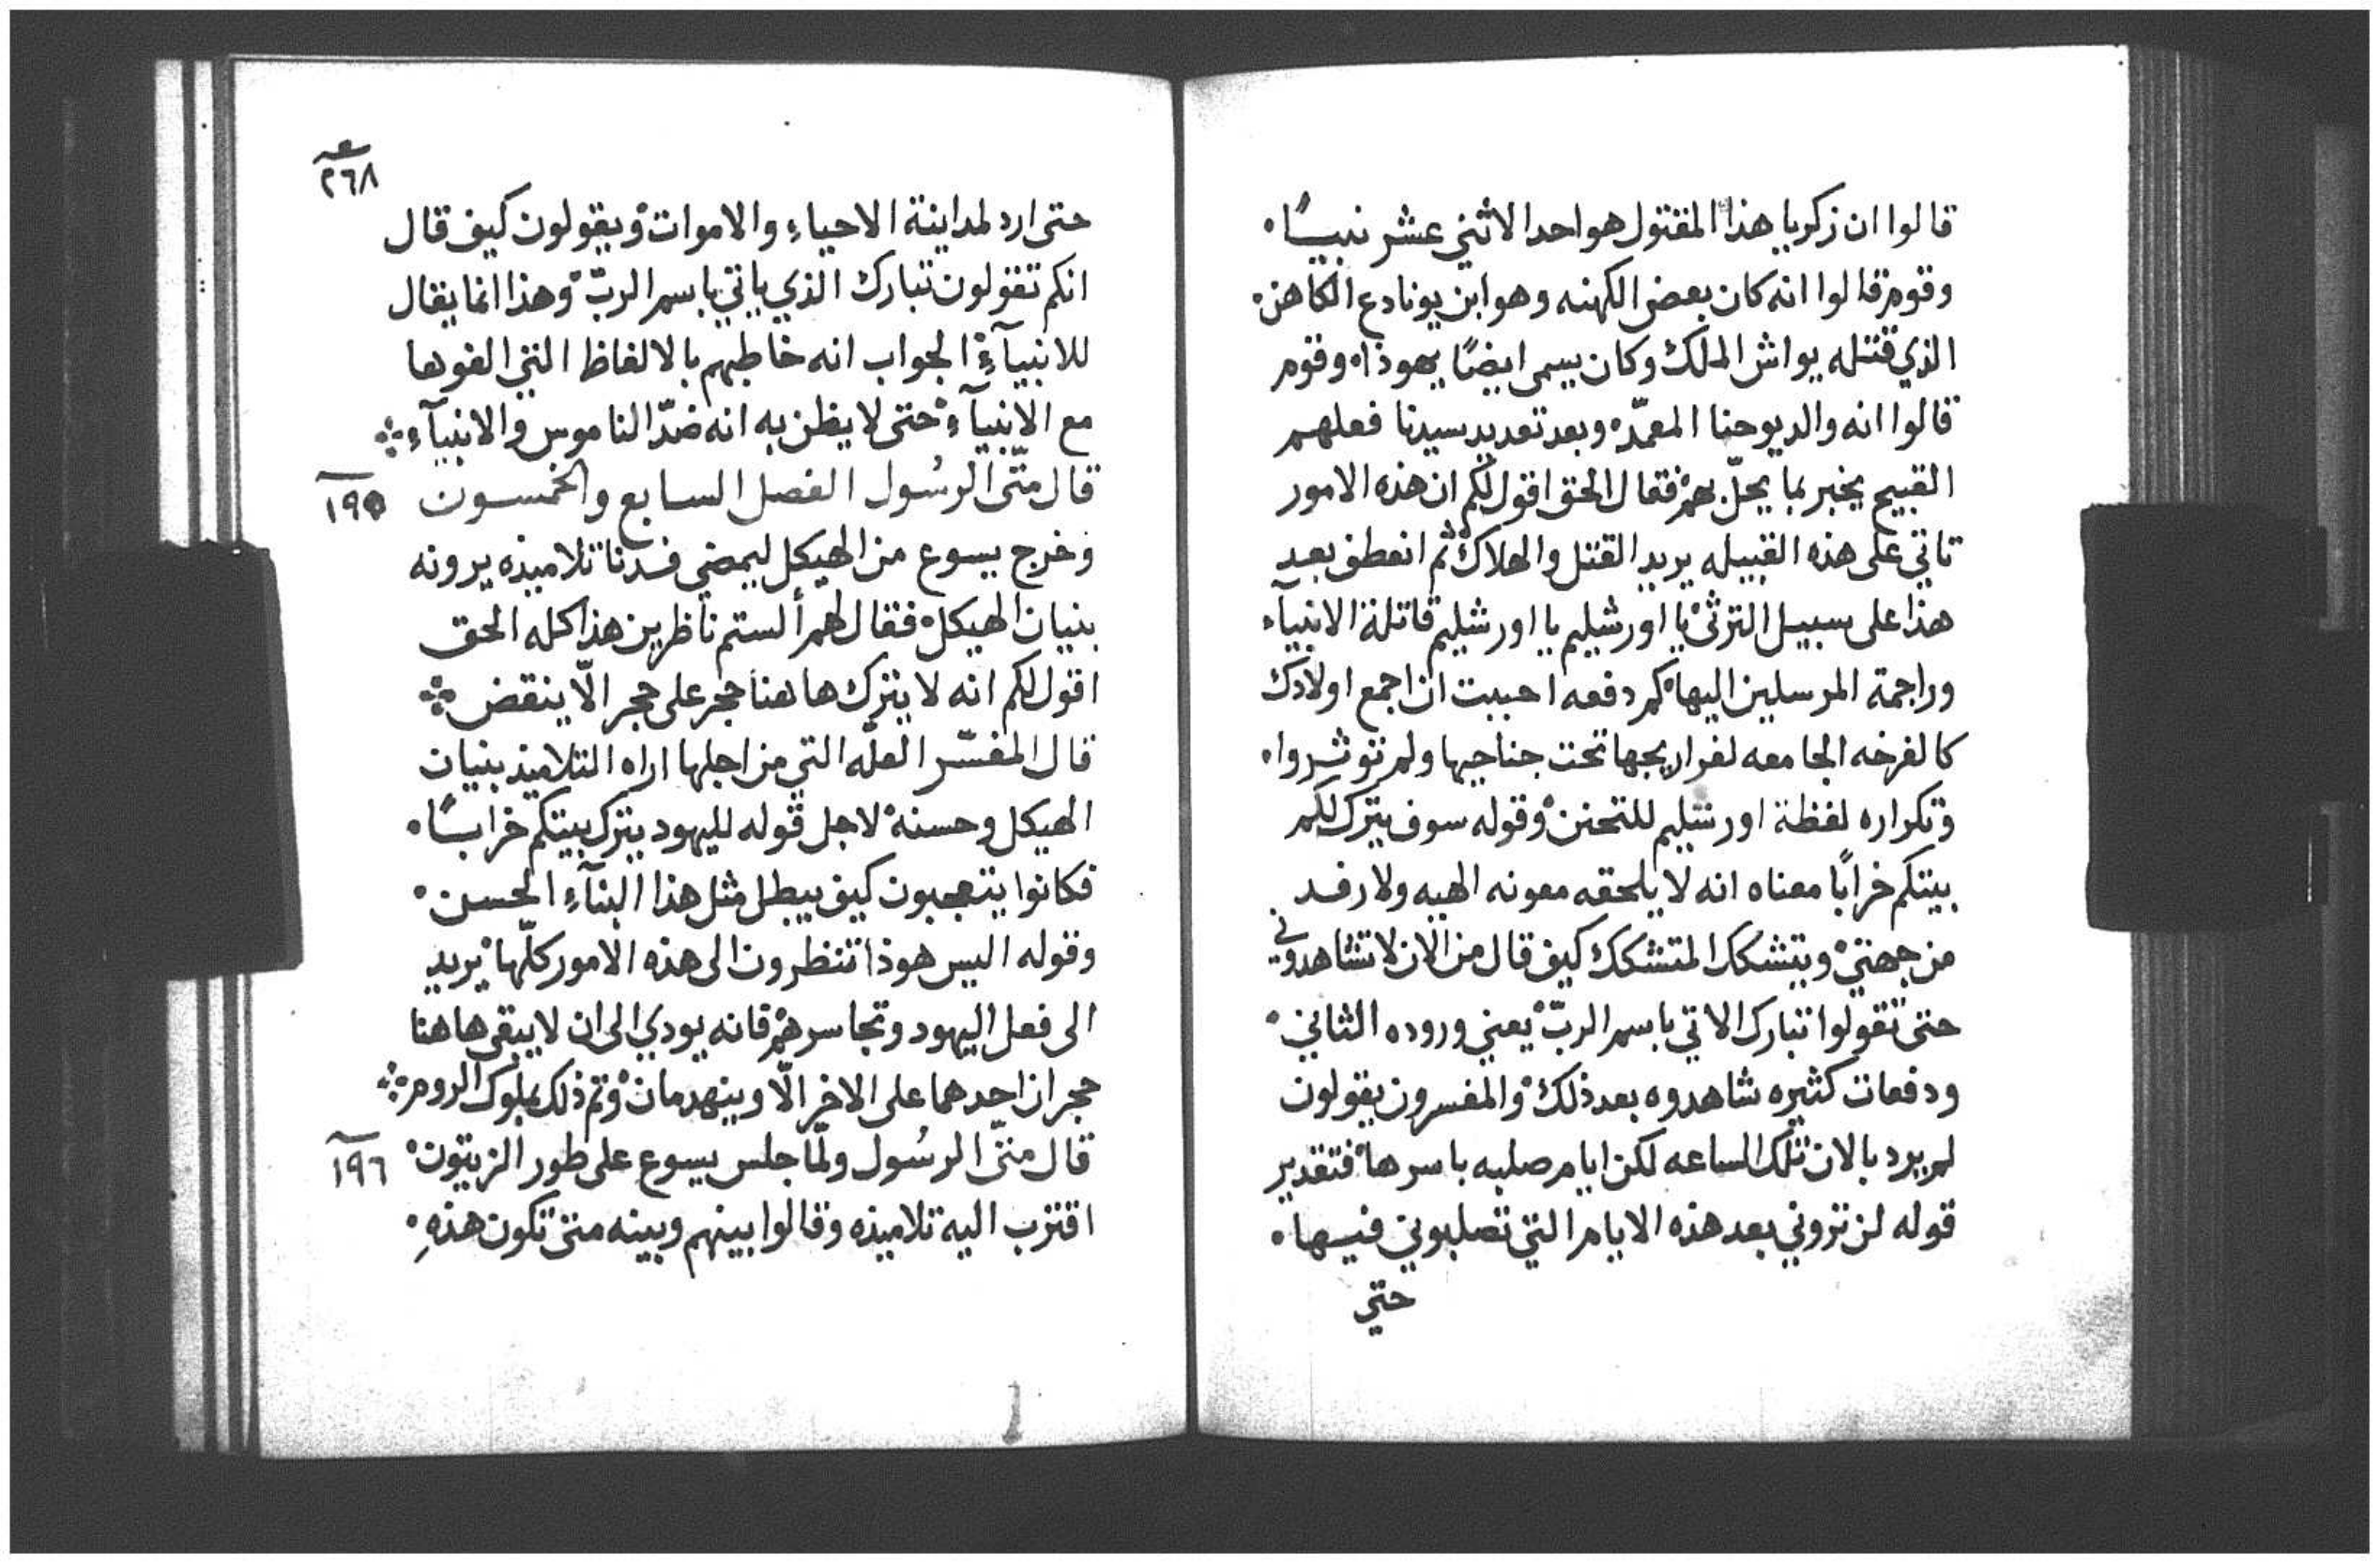 قالوا ان زكريا هذا المقتول هو احد الاثني عشر نبيًا.
وقوم قالوا انه كان بعض الكهنه وهو ابن يونادع الكاهن.
الذي قتله يواش الملك وكان يسمى ايضًا يهوذا. وقوم
قالوا انه والد يوحنا المعمّد. وبعد تعديد سيدنا فعلهم
القبيح يخبر بما يحلّ بهم. فقال الحق اقول لكم ان هذه الامور
تاتي على هذه القبيله يريد القتل والهلاك. ثم انعطف بعد
هذا على سبيل الترثي. يا اورشليم يا اورشليم قاتلة الانبيآء
وراجمة المرسلين اليها. كم دفعه احببت ان اجمع اولادك
كالفرخه الجامعه لفراريجها تحت جناحيها ولم توثروا.
وتكراره لفظة اورشليم للتحنن. وقوله سوف يترك لكم
بيتكم خرابًا معناه انه لا يلحقه معونه الهيه ولا رفد
من جهتي. ويتشكك المتشكك كيف قال من الان لا تشاهدوني
حتى تقولوا تبارك الاتي باسم الربّ. يعني وروده الثاني.
ودفعات كثيره شاهدوه بعد ذلك. والمفسرون يقولون
لم يرد بالان تلك الساعه لكن ايام صلبه باسرها. فتقدير
قوله لن تروني بعد هذه الايام التي تصلبوني فيها.
حتي
٢٦٨
حتى ارد لمداينة الاحياء والاموات. ويقولون كيف قال
انكم تقولون تبارك الذي ياتي باسم الربّ. وهذا انما يقال
للانبيآء. الجواب انه خاطبهم بالالفاظ التي الفوها
مع الانبيآء. حتى لا يظن به انه ضدّ الناموس والانبيآء
قال متّى الرسُول الفصل السابع والخمسون ١٩٥
وخرج يسوع من الهيكل ليمضي فدنا تلاميذه يرونه
بنيان الهيكل. فقال لهم ألستم ناظرين هذا كله الحق
اقول لكم انه لا يترك هاهنا حجر على حجر الّا ينقض
قال المفسّر العلّه التي من اجلها اراه التلاميذ بنيان
الهيكل وحسنه. لاجل قوله لليهود يترك بيتكم خرابًا.
فكانوا يتعجبون كيف يبطل مثل هذا البنآء الحسن.
وقوله اليس هوذا تنظرون الى هذه الامور كلّها. يريد
الى فعل اليهود وتجاسرهم. فانه يودي الى ان لا يبقى هاهنا
حجران احدهما على الاخر الّا وينهدمان. وتم ذلك بملوك الروم
قال متّى الرسُول ولمّا جلس يسوع على طور الزيتون. ١٩٦
اقترب اليه تلاميذه وقالوا بينهم وبينه متى تكون هذهِ.